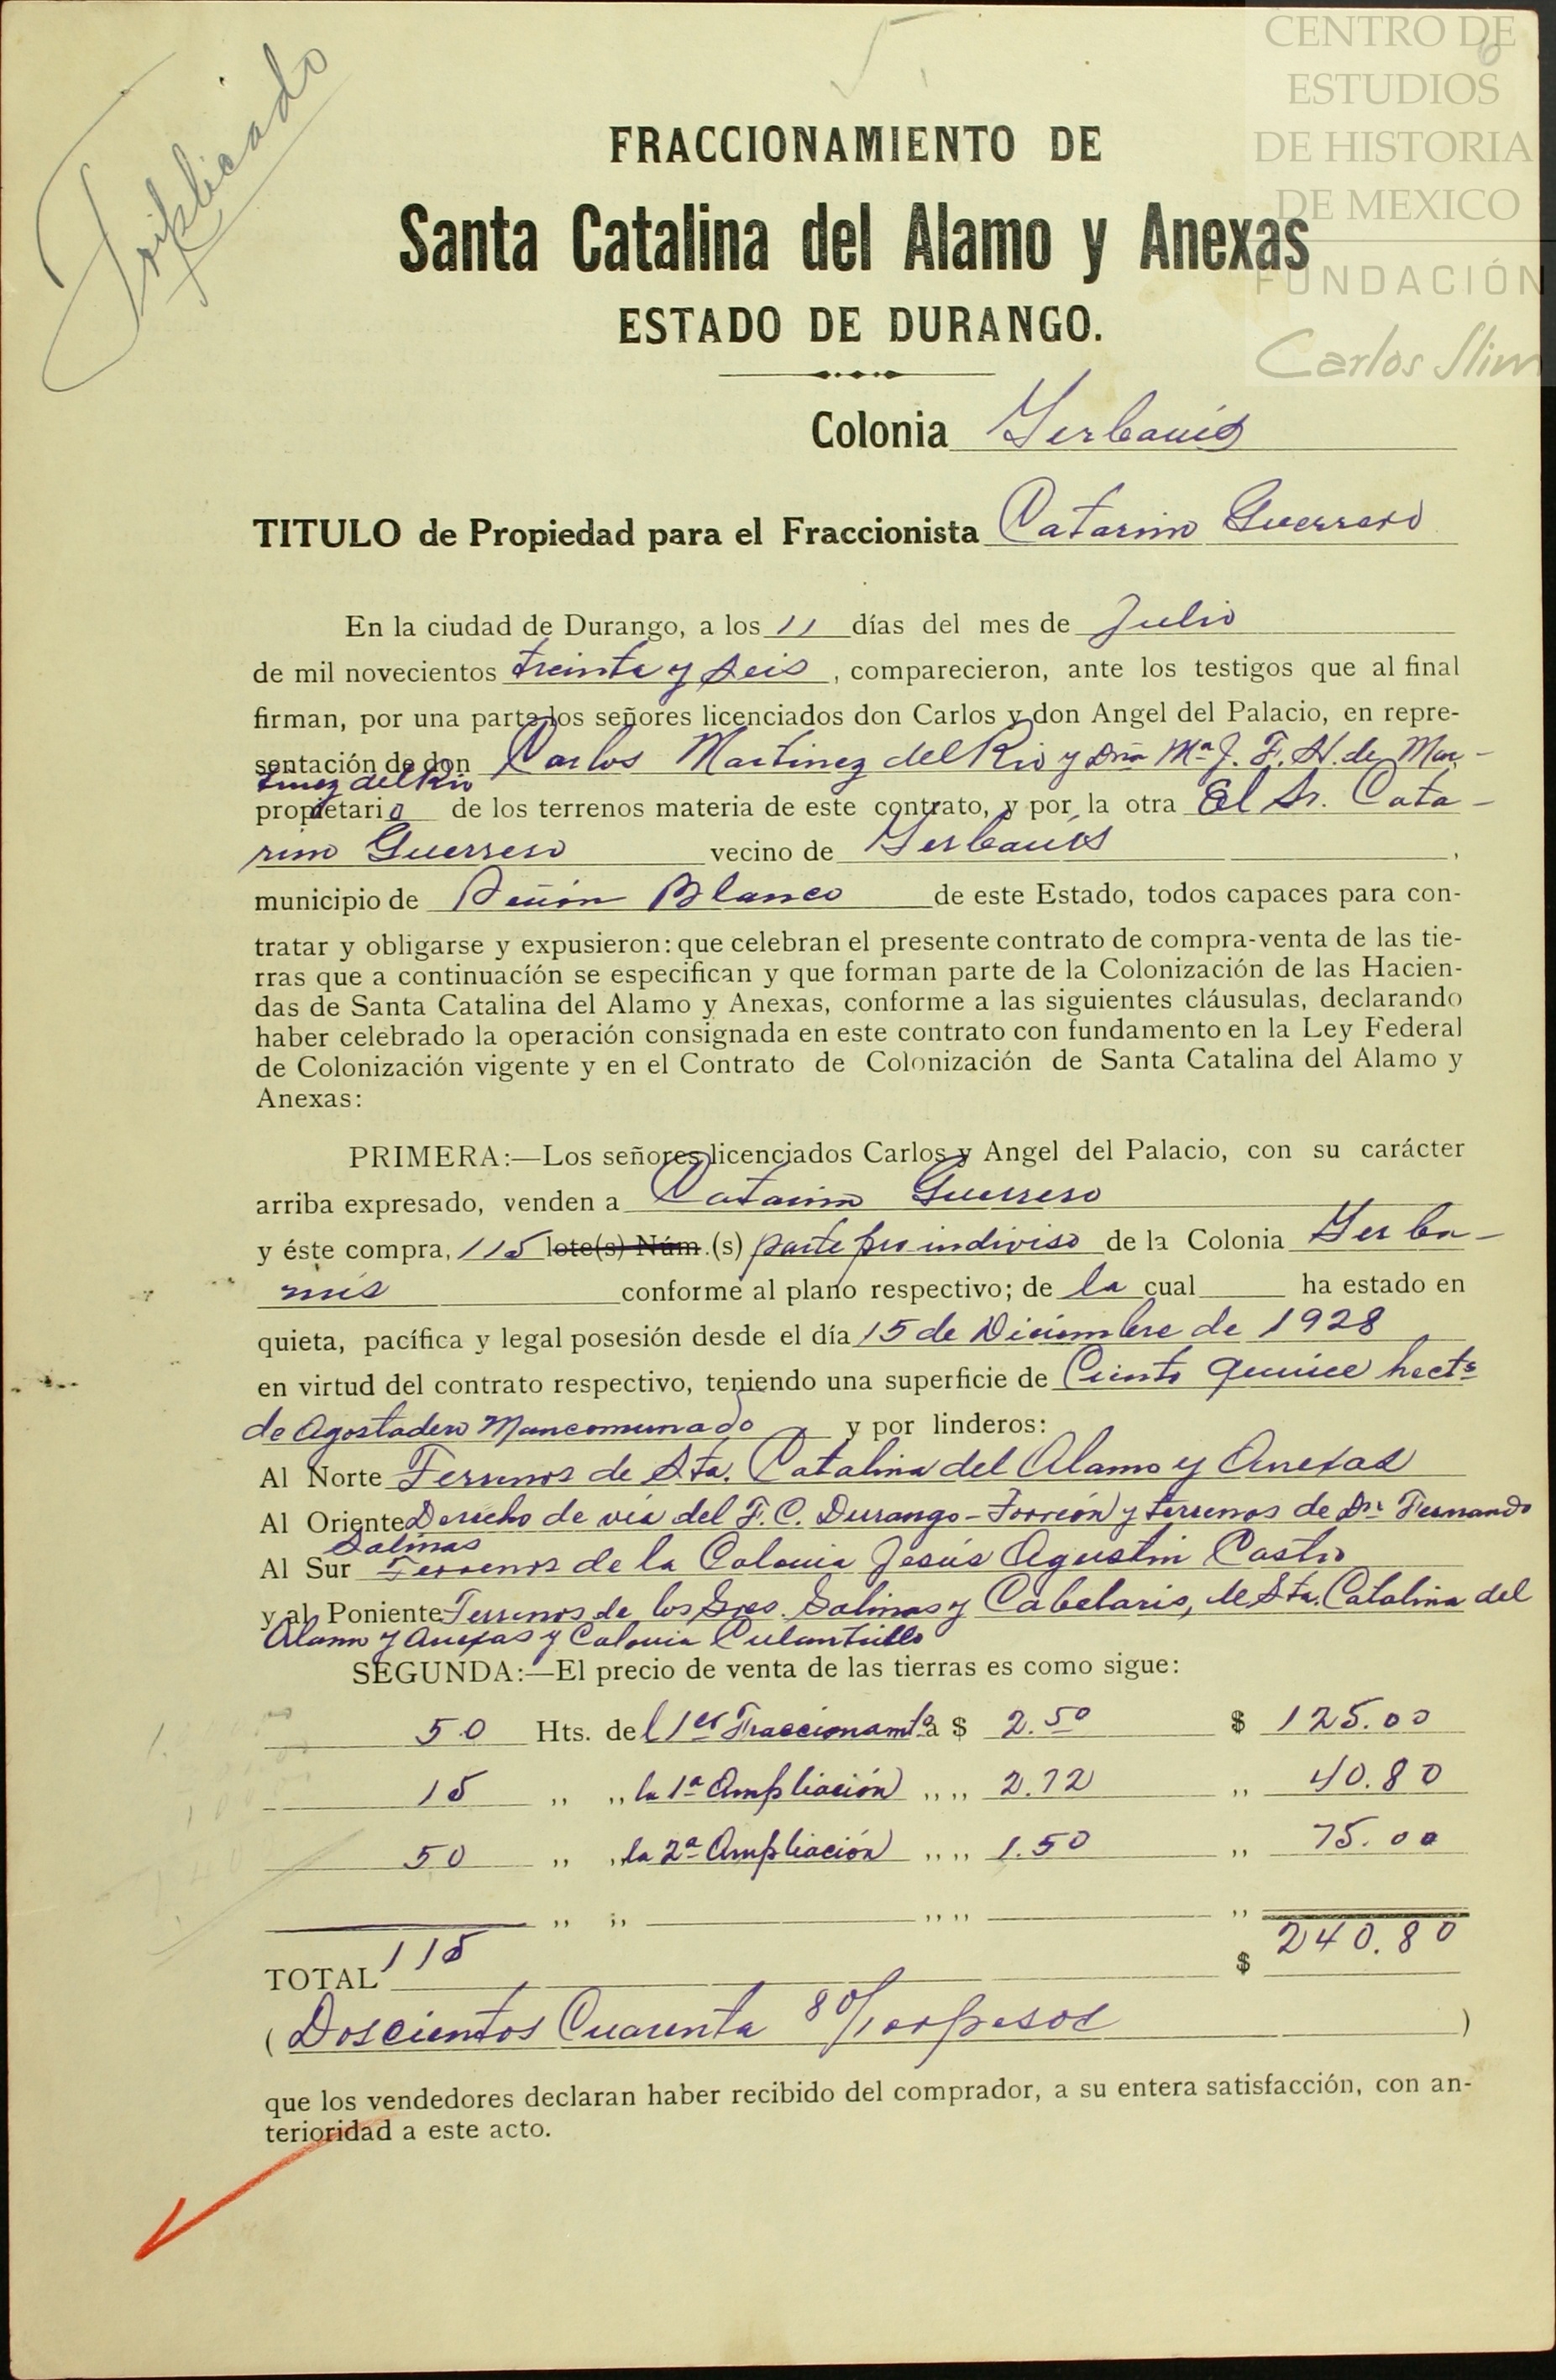 Triplicado
CENTRO DE
ESTUDIOS
DE HISTORIA
DE MEXICO
FUNDACIÓN
Carlos Slim
FRACCIONAMIENTO DE
Santa Catalina del Alamo y Anexas
ESTADO DE DURANGO.
Colonia Yerbanís
TITULO de Propiedad para el Fraccionista Catarino Guerrero
En la ciudad de Durango, a los 11 días del mes de Julio
de mil novecientos treinta y seis, comparecieron, ante los testigos que al final
firman, por una parte los señores licenciados don Carlos y don Angel del Palacio, en repre-
sentación de don Carlos Martinez del Rio y Dña Mª J. F. H. de Mar-
tinez del Rio
propietario de los terrenos materia de este contrato, y por la otra El Sr. Cata-
rino Guerrero vecino de Yerbanís,
municipio de Peñón Blanco de este Estado, todos capaces para con-
tratar y obligarse y expusieron: que celebran el presente contrato de compra-venta de las tie-
rras que a continuación se especifican y que forman parte de la Colonización de las Hacien-
das de Santa Catalina del Alamo y Anexas, conforme a las siguientes cláusulas, declarando
haber celebrado la operación consignada en este contrato con fundamento en la Ley Federal
de Colonización vigente y en el Contrato de Colonización de Santa Catalina del Alamo y
Anexas:
PRIMERA:—Los señores licenciados Carlos y Angel del Palacio, con su carácter
arriba expresado, venden a Catarino Guerrero
y éste compra, 115 lote(s) Núm.(s) parte pro indiviso de la Colonia Yerba-
nís conforme al plano respectivo; de la cual ha estado en
quieta, pacífica y legal posesión desde el día 15 de Diciembre de 1928
en virtud del contrato respectivo, teniendo una superficie de Ciento quince hects
de Agostadero Mancomunado y por linderos:
Al Norte Terrenos de Sta. Catalina del Alamo y Anexas
Al Oriente Derecho de via del F. C. Durango-Torreón y terrenos de Dn Fernando
Salinas
Al Sur Terrenos de la Colonia Jesús Agustin Castro
y al Poniente Terrenos de los Sres. Salinas y Cabelaris, de Sta. Catalina del
Alamo y Anexas y Colonia Culantrillo
SEGUNDA:—El precio de venta de las tierras es como sigue:
50 Hts. del 1er Fraccionamto a $ 2.50 $ 125.00
15 ,, ,, la 1ª Ampliación ,, ,, 2.72 ,, 40.80
50 ,, ,, la 2ª Ampliación ,, ,, 1.50 ,, 75.00
,, ,, ,, ,, ,,
TOTAL 115 $ 240.80
(Doscientos Cuarenta 80/100 pesos)
que los vendedores declaran haber recibido del comprador, a su entera satisfacción, con an-
terioridad a este acto.